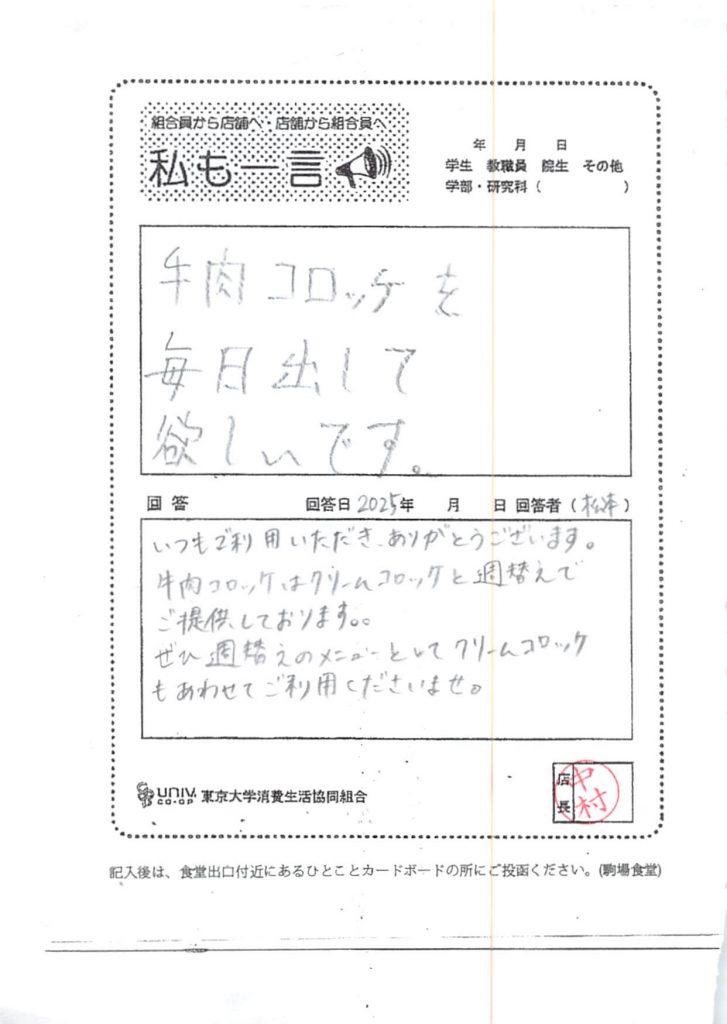 組合員から店舗へ・店舗から組合員へ
私も一言
年 月 日
学生 教職員 院生 その他
学部・研究科（ ）
牛肉コロッケを
毎日出して
欲しいです。
回答 回答日 2025年 月 日 回答者（松本）
いつもご利用いただき、ありがとうございます。
牛肉コロッケはクリームコロッケと週替えで
ご提供しております。。
ぜひ週替えのメニューとしてクリームコロッケ
もあわせてご利用くださいませ。
UNIV.
CO-OP
東京大学消費生活協同組合
店長
中村
記入後は、食堂出口付近にあるひとことカードボードの所にご投函ください。(駒場食堂)